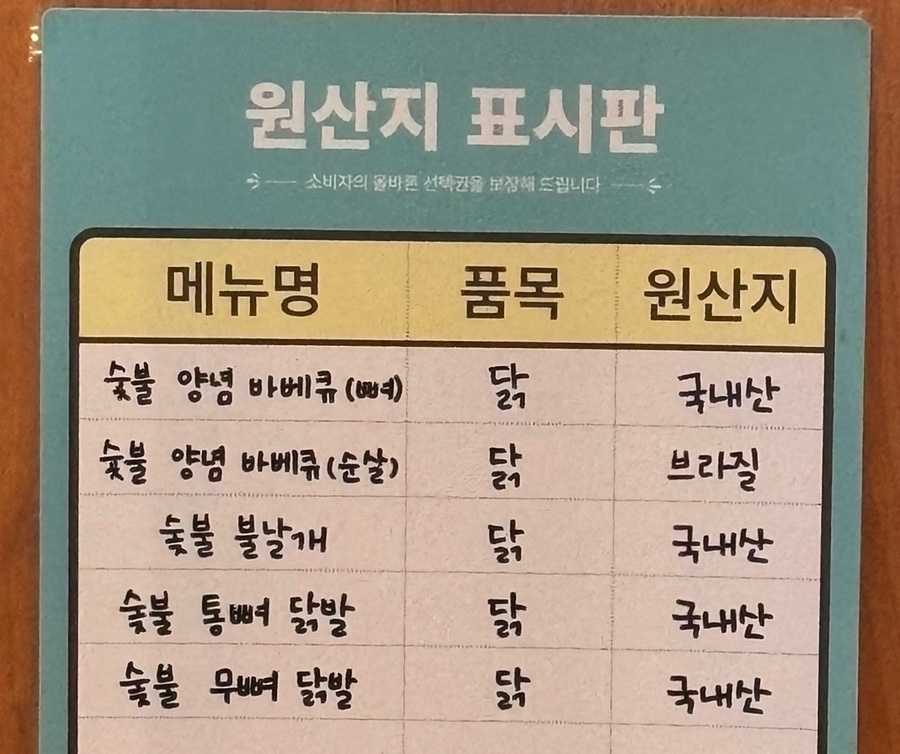 원산지 표시판
소비자의 올바른 선택권을 보장해 드립니다
메뉴명 품목 원산지
숯불 양념 바베큐 (뼈) 닭 국내산
숯불 양념 바베큐 (순살) 닭 브라질
숯불 불날개 닭 국내산
숯불 통뼈 닭발 닭 국내산
숯불 무뼈 닭발 닭 국내산